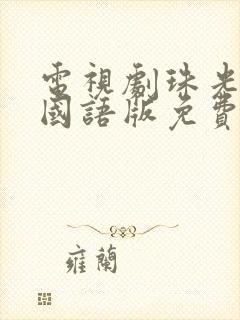 電視劇珠光
國語版免費
雍蘭